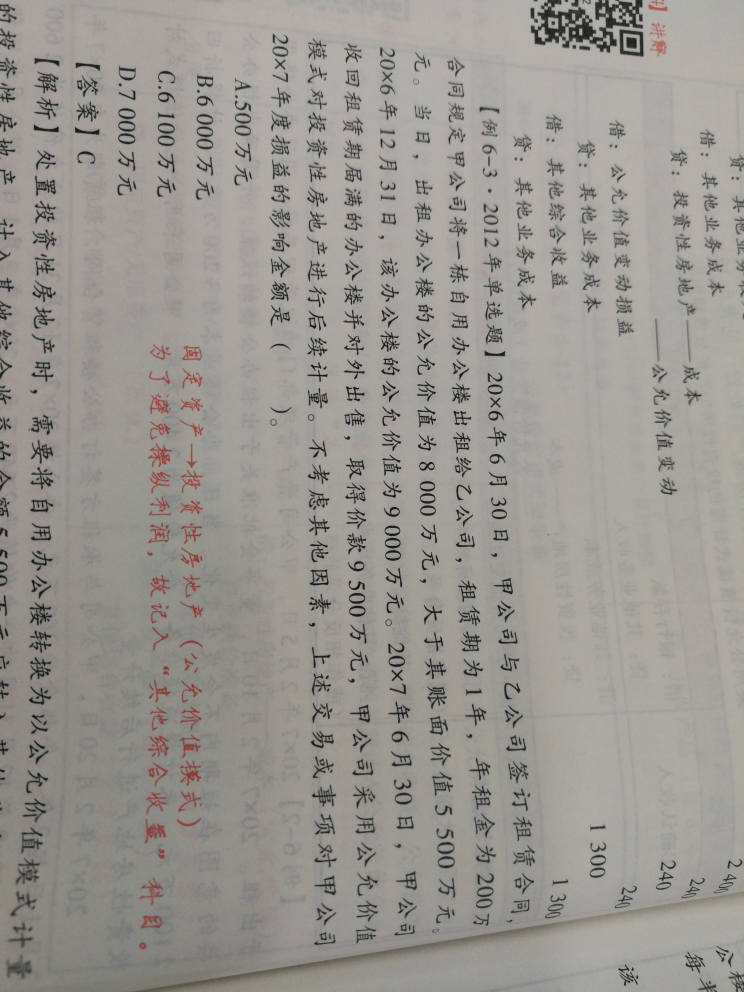 】讲解
贷：其他业务收
2 400
借：其他业务成本
240
贷：投资性房地产——成本
240
——公允价值变动
借：公允价值变动损益
240
贷：其他业务成本
1 300
借：其他综合收益
1 300
贷：其他业务成本
【例 6-3·2012年单选题】20×6年6月30日，甲公司与乙公司签订租赁合同，
合同规定甲公司将一栋自用办公楼出租给乙公司，租赁期为1年，年租金为200万
元。当日，出租办公楼的公允价值为8 000万元，大于其账面价值5 500万元。
20×6年12月31日，该办公楼的公允价值为9 000万元。20×7年6月30日，甲公司
收回租赁期届满的办公楼并对外出售，取得价款9 500万元，甲公司采用公允价值
模式对投资性房地产进行后续计量。不考虑其他因素，上述交易或事项对甲公司
20×7年度损益的影响金额是（　　）。
A.500万元
B.6 000万元
C.6 100万元
D.7 000万元
固定资产→投资性房地产（公允价值模式）
为了避免操纵利润，故记入“其他综合收益”科目。
【答案】C
【解析】处置投资性房地产时，需要将自用办公楼转换为以公允价值模式计量
的投资性房地产，计入其他综合收益的金额
公楼
每半
该